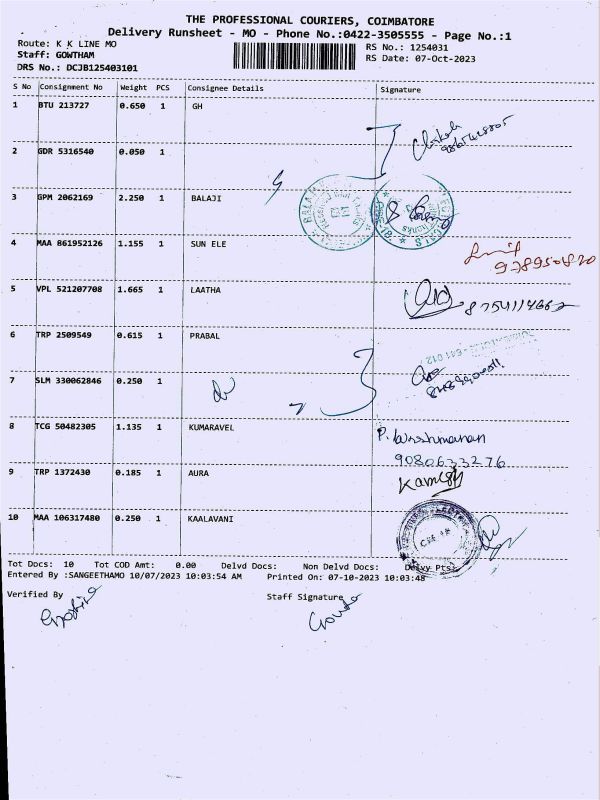 THE PROFESSIONAL COURIERS, COIMBATORE
Delivery Runsheet - MO - Phone No.:0422-3505555 - Page No.:1
Route: K K LINE MO
RS No.: 1254031
Staff: GOWTHAM
RS Date: 07-Oct-2023
DRS No.: DCJB125403101
S No Consignment No Weight PCS Consignee Details Signature
1 BTU 213727 0.650 1 GH
2 GDR 5316540 0.050 1
3 GPM 2062169 2.250 1 BALAJI
4 MAA 861952126 1.155 1 SUN ELE
5 VPL 521207708 1.665 1 LAATHA
8754114662
6 TRP 2509549 0.615 1 PRABAL
7 SLM 330062846 0.250 1
8 TCG 50482305 1.135 1 KUMARAVEL
9080633276
9 TRP 1372430 0.185 1 AURA
Kamesh
10 MAA 106317480 0.250 1 KAALAVANI
Tot Docs: 10 Tot COD Amt: 0.00 Delvd Docs: Non Delvd Docs: Delvy Pts:
Entered By :SANGEETHAMO 10/07/2023 10:03:54 AM Printed On: 07-10-2023 10:03:48
Verified By Staff Signature